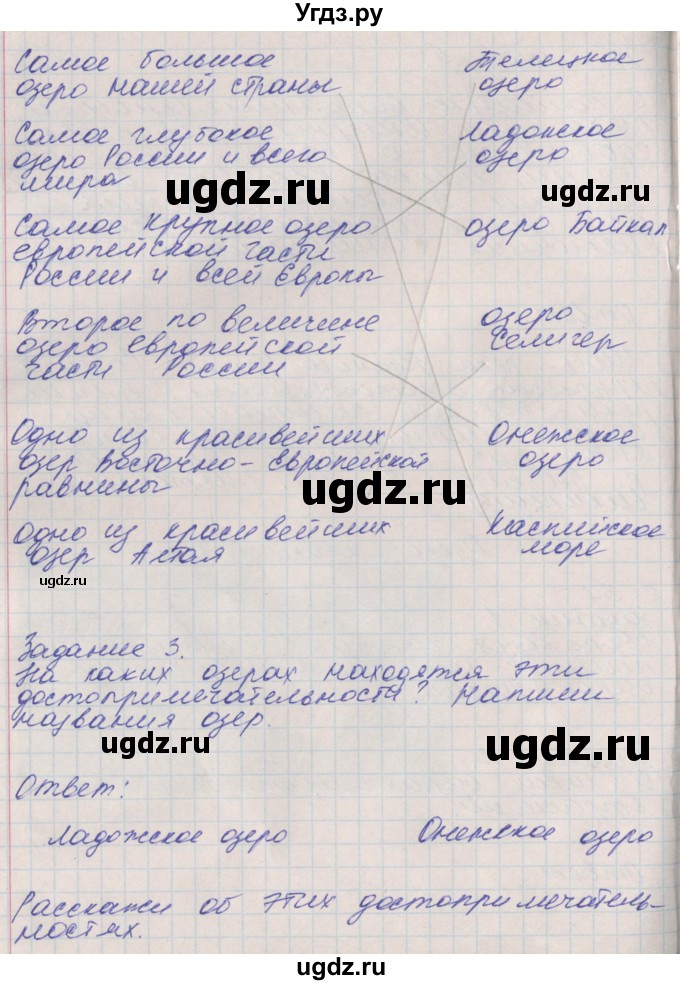 Угдз.ру
Самое большое
озеро нашей страны
Телецкое
озеро
Самое глубокое
озеро России и всего
мира
Ладожское
озеро
ugdz.ru
ugdz.ru
Самое крупное озеро
европейской части
России и всей Европы
озеро Байкал
Второе по величине
озеро европейской
части России
озеро
Селигер
Одно из красивейших
озер Восточно-Европейской
равнины
Онежское
озеро
ugdz.ru
Одно из красивейших
озер Алтая
Каспийское
море
ugdz.ru
Задание 3.
На каких озерах находятся эти
достопримечательности? Напиши
названия озер.
ugdz.ru
ugdz.ru
Ответ:
Ладожское озеро
Онежское озеро
Расскажи об этих достопримечатель-
ностях.
ugdz.ru